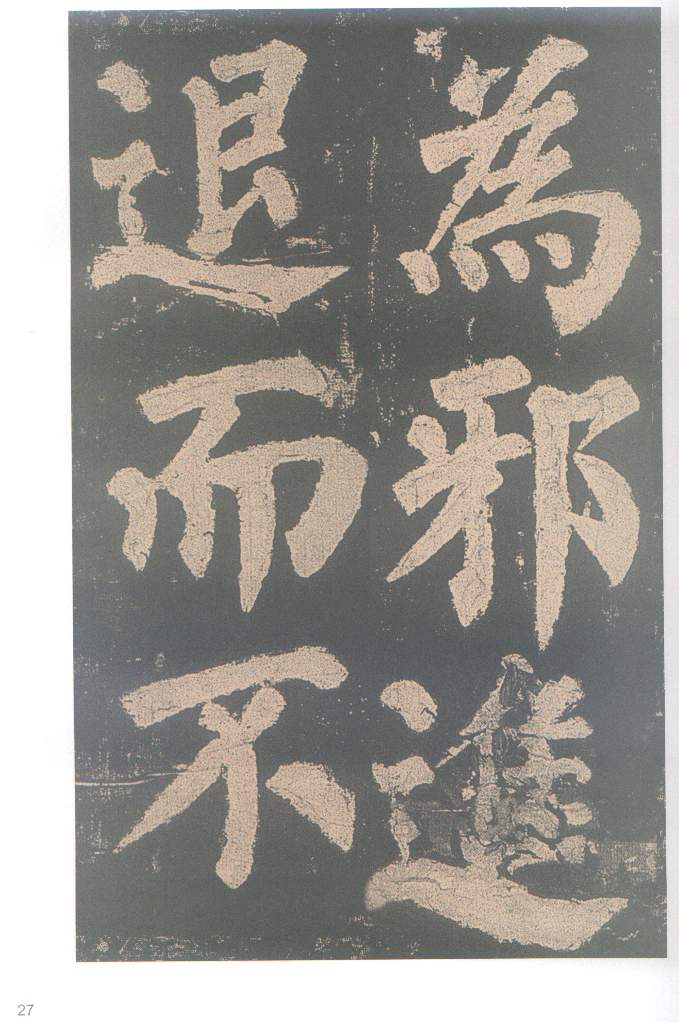 為邪進
退而不
27